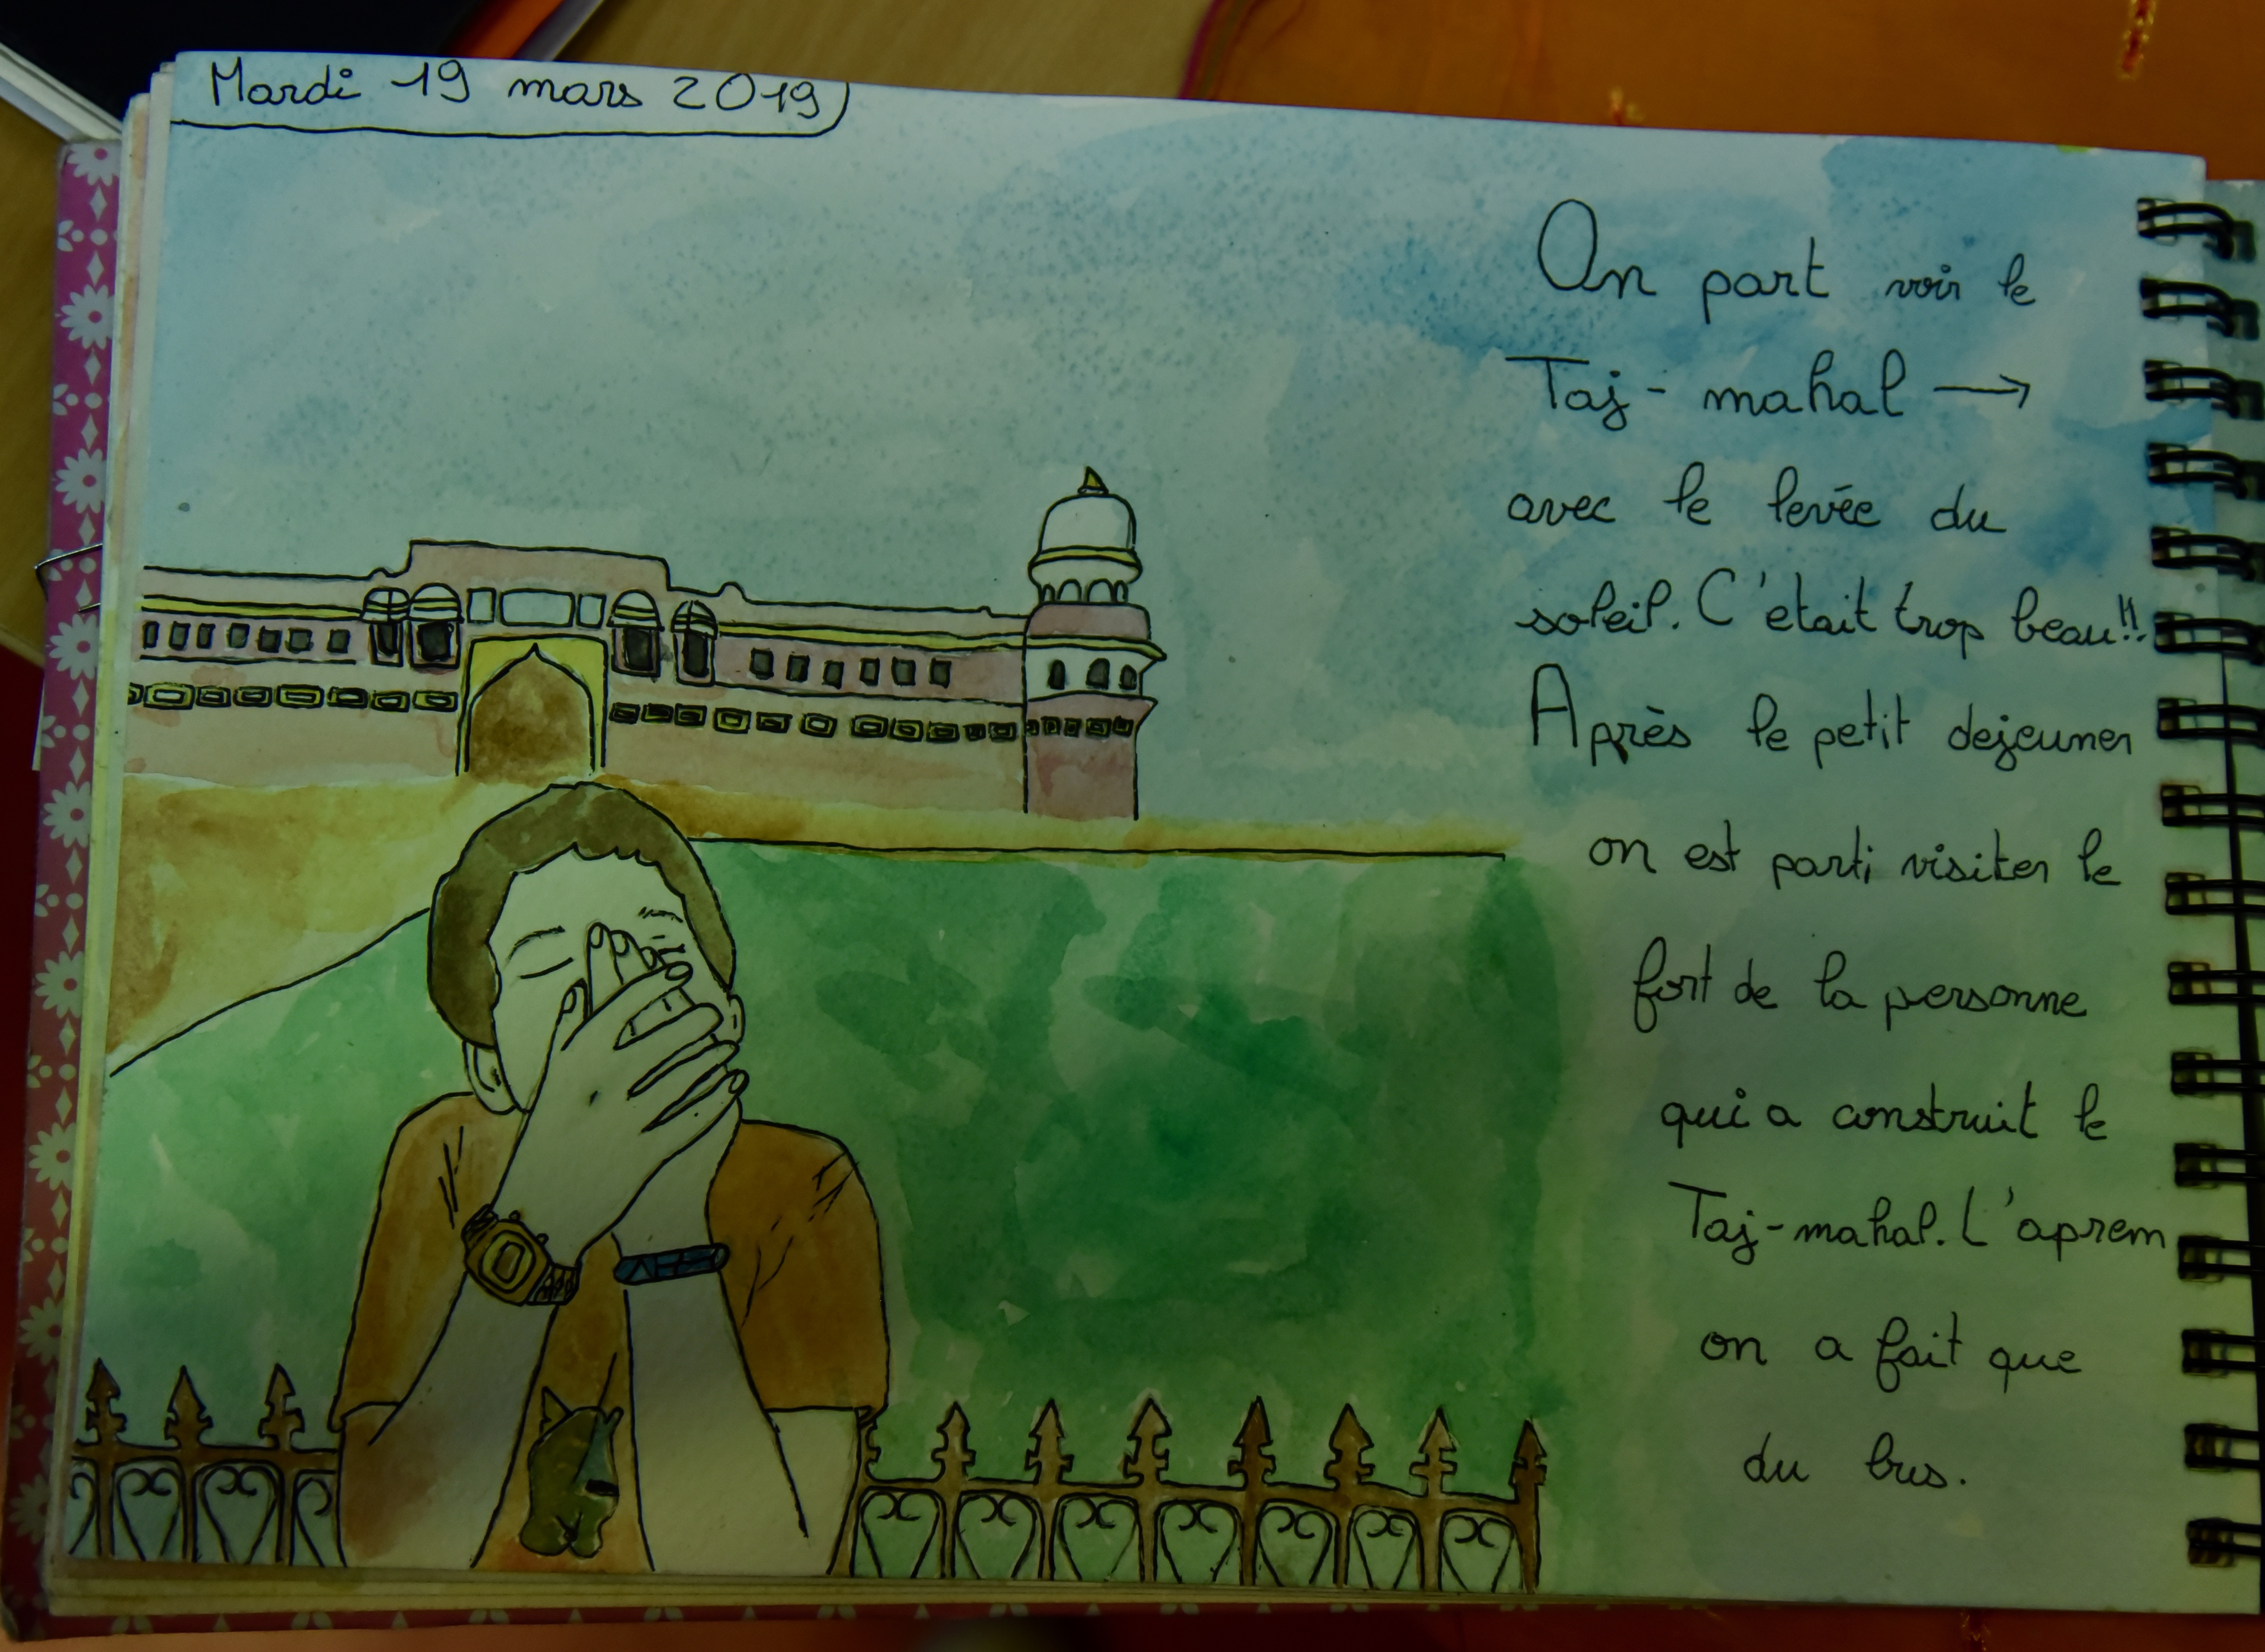 Mardi 19 mars 2019
On part voir le
Taj-mahal →
avec le levée du
soleil. C'etait trop beau!!
Après le petit dejeuner
on est parti visiter le
fort de la personne
qui a construit le
Taj-mahal. L'aprem
on a fait que
du bus.